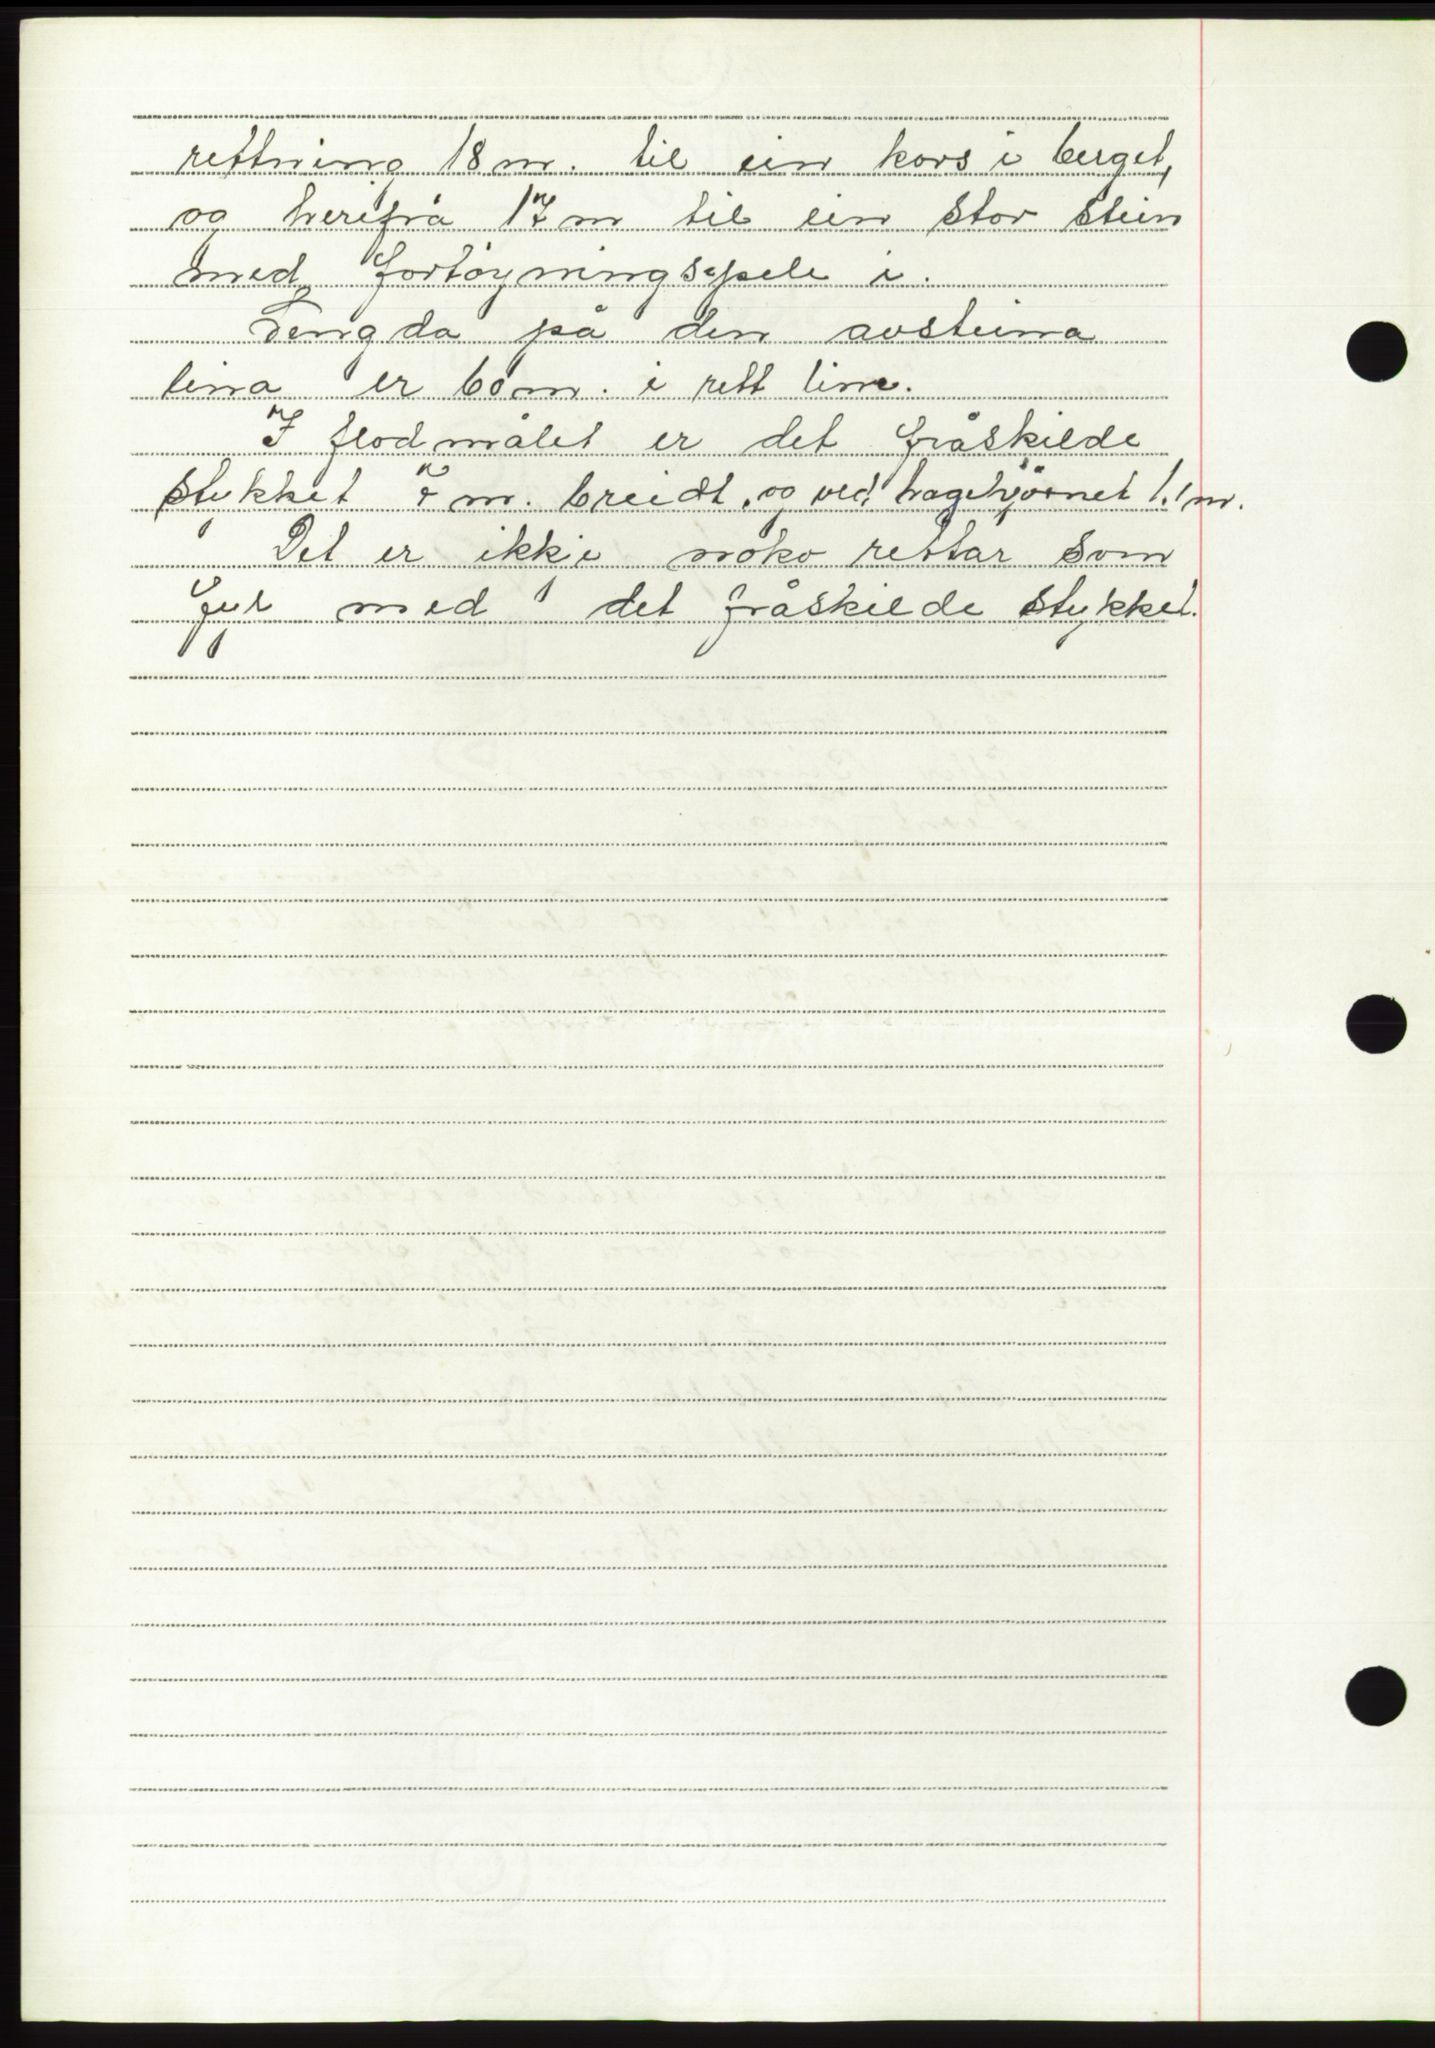 rettning 18 m. til ein kors i berget,
og herifrå 17 m til ein stor stein
med fortøyningspele i.
Lengda på den avsteina
lina er 60 m. i rett line.
I flodmålet er det fråskilde
stykket m. breidt, og ved hagehjörnet 1.1 m.
Det er ikkje noko rettar som
fyl med det fråskilde stykket.